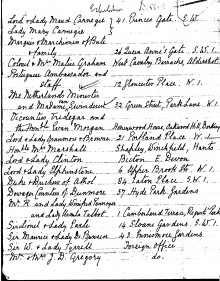 Lord & Lady Maud Carnegie } 41 Princes Gate. S.W.
Lady Mary Carnegie }
Marquis & Marchioness of Bute
& family 26 Queen Anne's Gate. S.W.1
Colonel & Mrs Malise Graham West Cavalry Barracks, Aldershot
Portuguese Ambassador and
Staff 12 Gloucester Place. W.1.
The Netherlands Minister
and Madame Swinderen 32 Green Street, Park Lane. W.1
Viscountess Tredegar and
the Honble Morgan Honeywood House, Oakwood Hill, Dorking
Lord & Lady & Browne 21 Portland Place. W.1.
Honble Mrs Marshall Shapley, Winchfield, Hants
Lord & Lady Clinton Bicton E. Devon
Lord & Lady Elphinstone 6 Upper Brook St. W.1
Duke & Duchess of Atholl 84 Eaton Place. S.W.1
Dowager Countess of Dunmore 37 Hyde Park Gardens
Mr R. and Lady
and Lady Ursula Talbot 1 Cumberland Terrace, Regents Park
Sir Lionel & Lady Earle 14 Sloane Gardens. S.W.1.
Sir Maurice & Lady de Bunsen 42 Gardens
Sir W. & Lady Tyrrell Foreign Office
Mr & Mrs J.D. Gregory do.